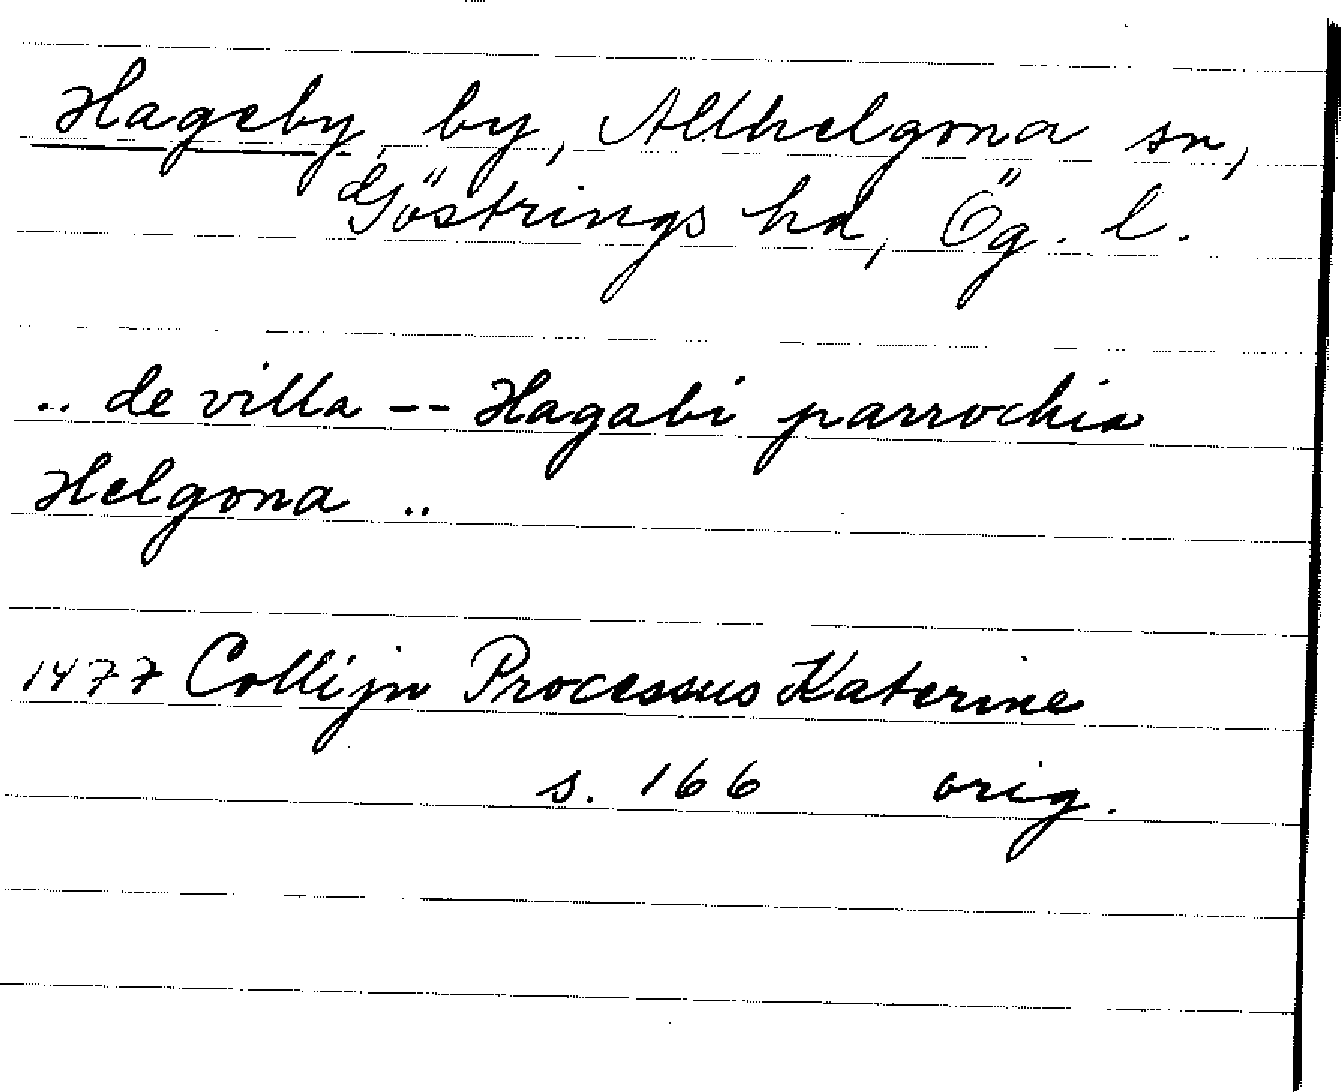 Hageby, by, Allhelgona sn,
Göstrings hd, Ög. l.
.. de villa -- Hagabi parrochia
Helgona ..
1477 Collijn Processus Katerine
s. 166 orig.